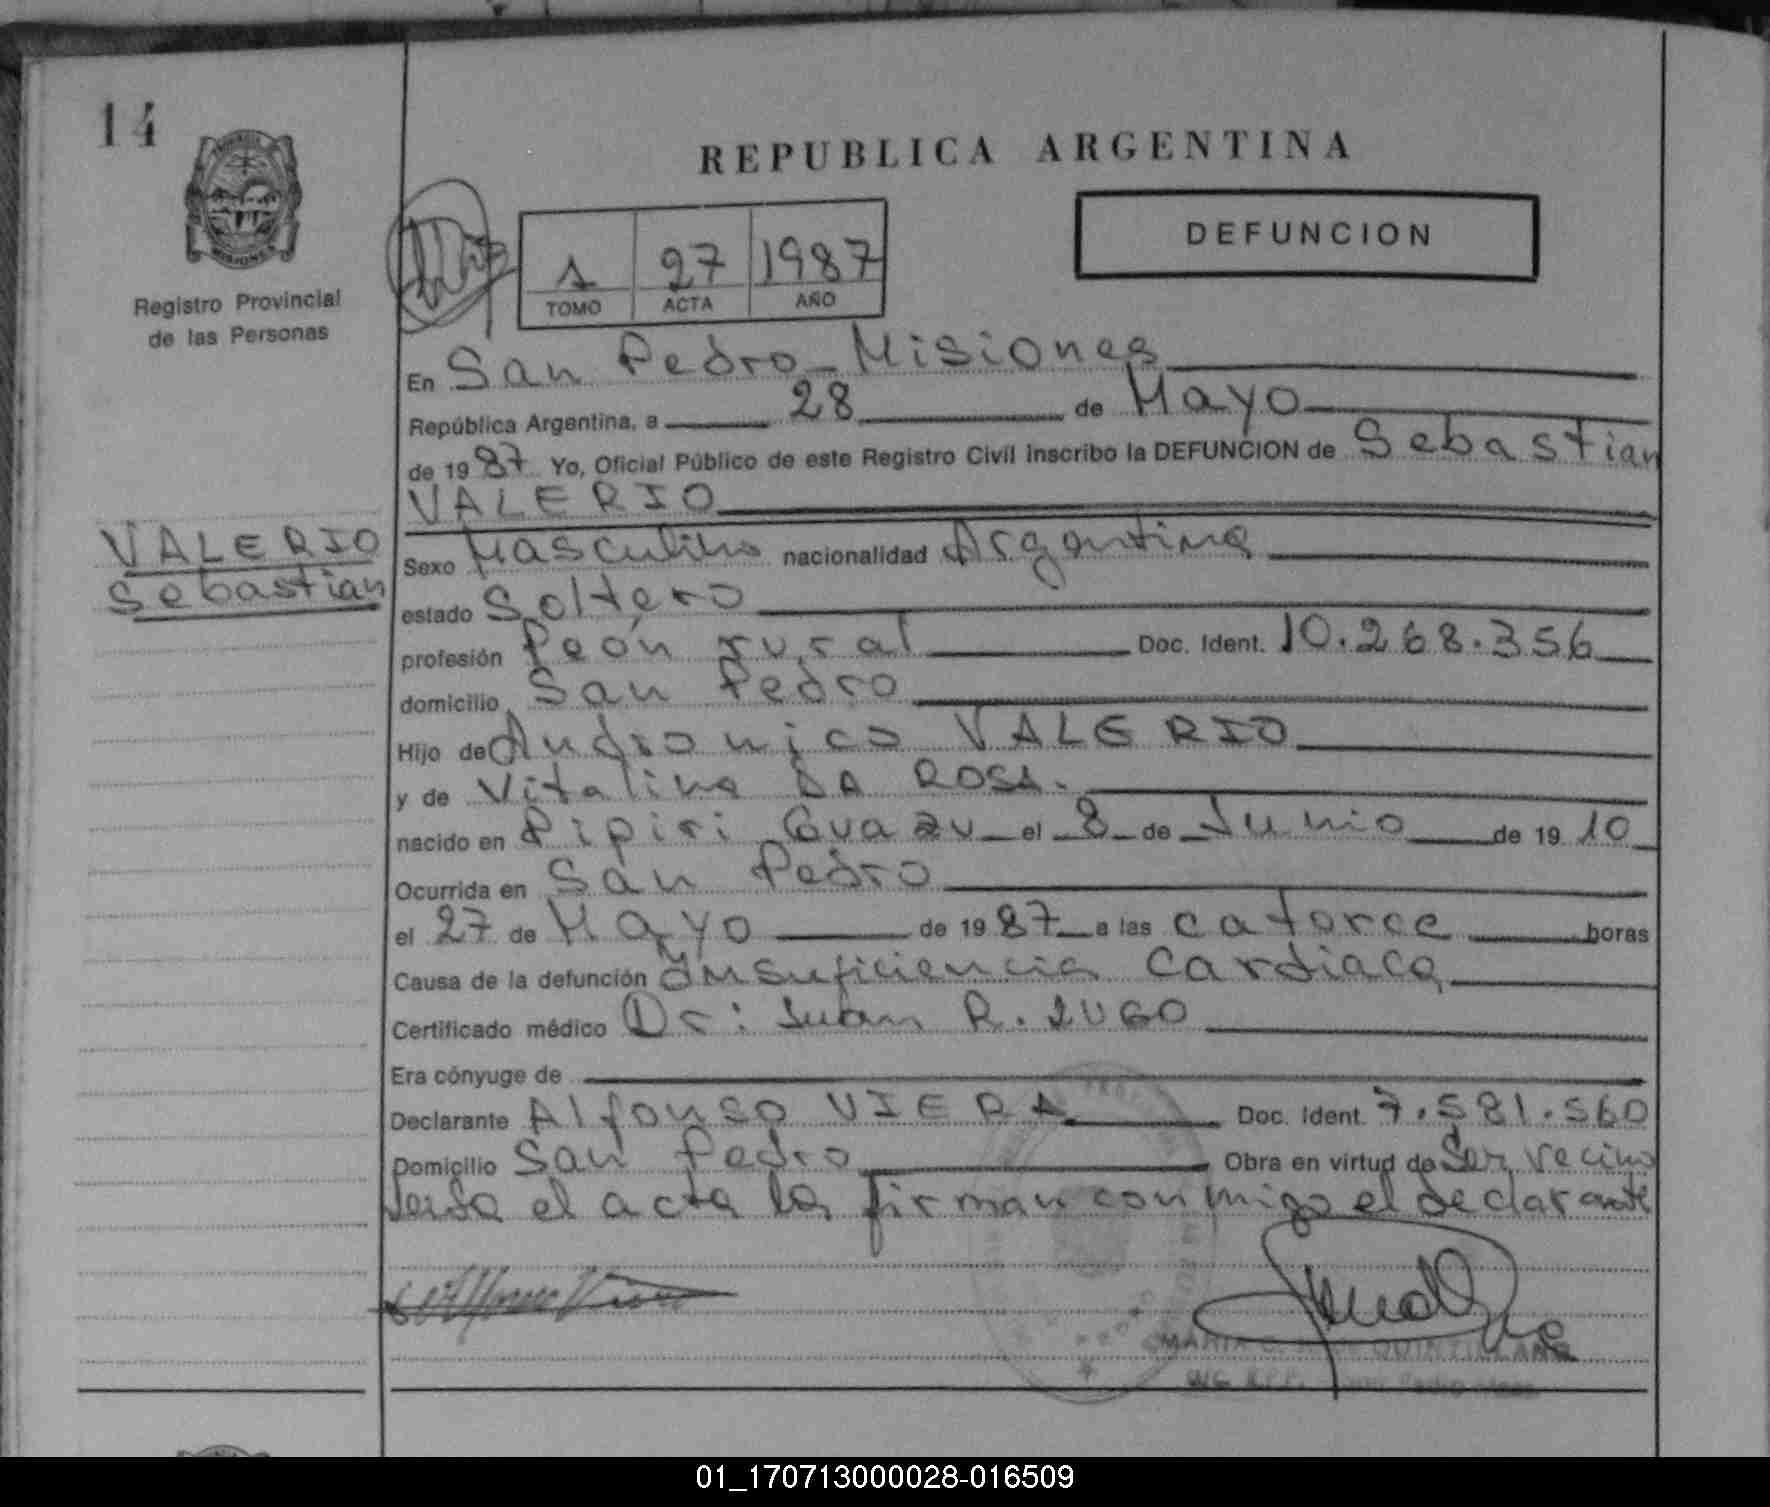 14
Registro Provincial
de las Personas
REPUBLICA ARGENTINA
1 27 1987
TOMO ACTA AÑO
DEFUNCION
En San Pedro - Misiones
República Argentina, a 28 de Mayo
de 1987 Yo, Oficial Público de este Registro Civil inscribo la DEFUNCION de Sebastian
VALERIO
VALERIO
Sebastian
Sexo Masculino nacionalidad Argentina
estado Soltero
profesión Peón rural Doc. Ident. 10.268.356
domicilio San Pedro
Hijo de Andronico VALERIO
y de Vitalina DA ROSA.
nacido en Pipiri Guazu el 8 de Junio de 1910
Ocurrida en San Pedro
el 27 de Mayo de 1987 a las catorce horas
Causa de la defunción Insuficiencia Cardiaca
Certificado médico Dr: Juan R. LUGO
Era cónyuge de
Declarante Alfonso VIERA Doc. Ident. 7.581.560
Domicilio San Pedro Obra en virtud de Ser vecino
Leida el acta la firman conmigo el declarante
01_170713000028-016509